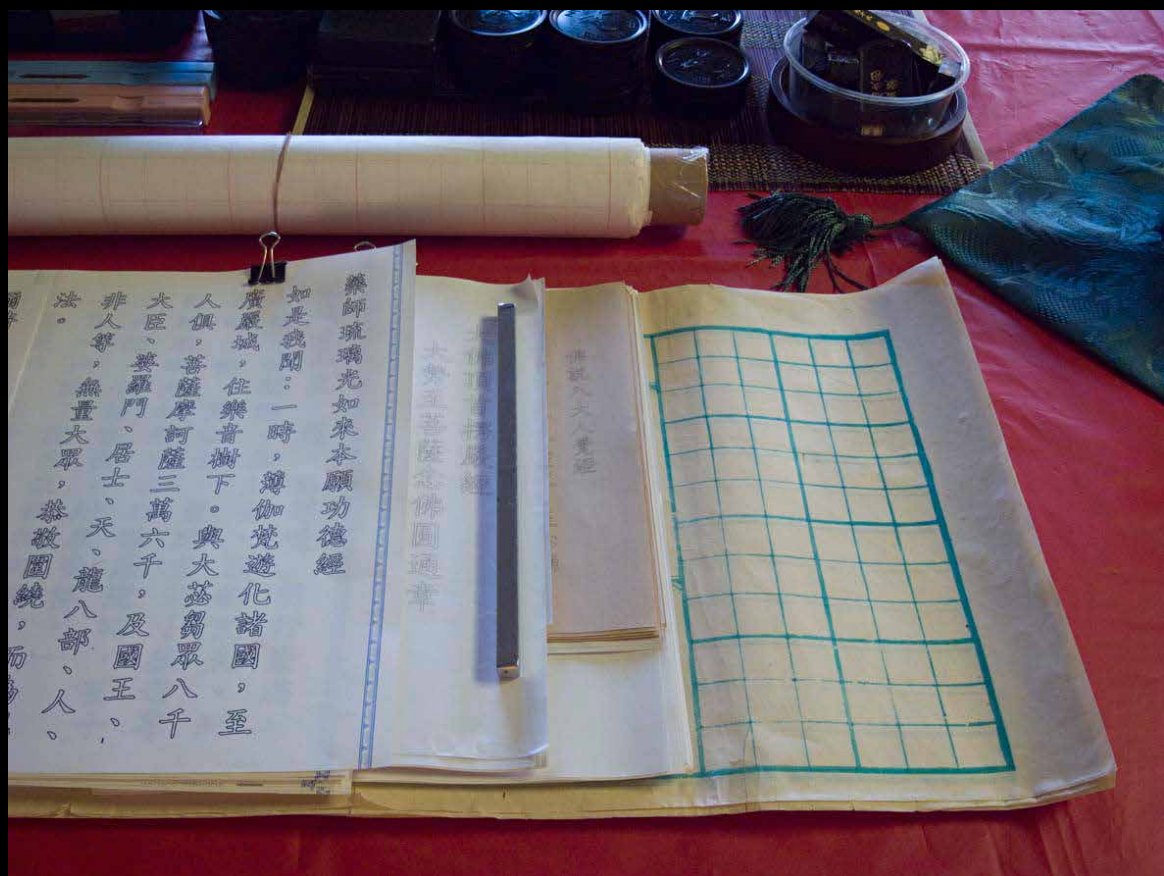 藥師琉璃光如來本願功德經
如是我聞：一時，薄伽梵遊化諸國，至
廣嚴城，住樂音樹下。與大苾芻眾八千
人俱，菩薩摩訶薩三萬六千，及國王、
大臣、婆羅門、居士、天、龍八部、人、
非人等，無量大眾，恭敬圍繞，而為
法。
大佛頂首楞嚴經
大勢至菩薩念佛圓通章
佛說八大人覺經